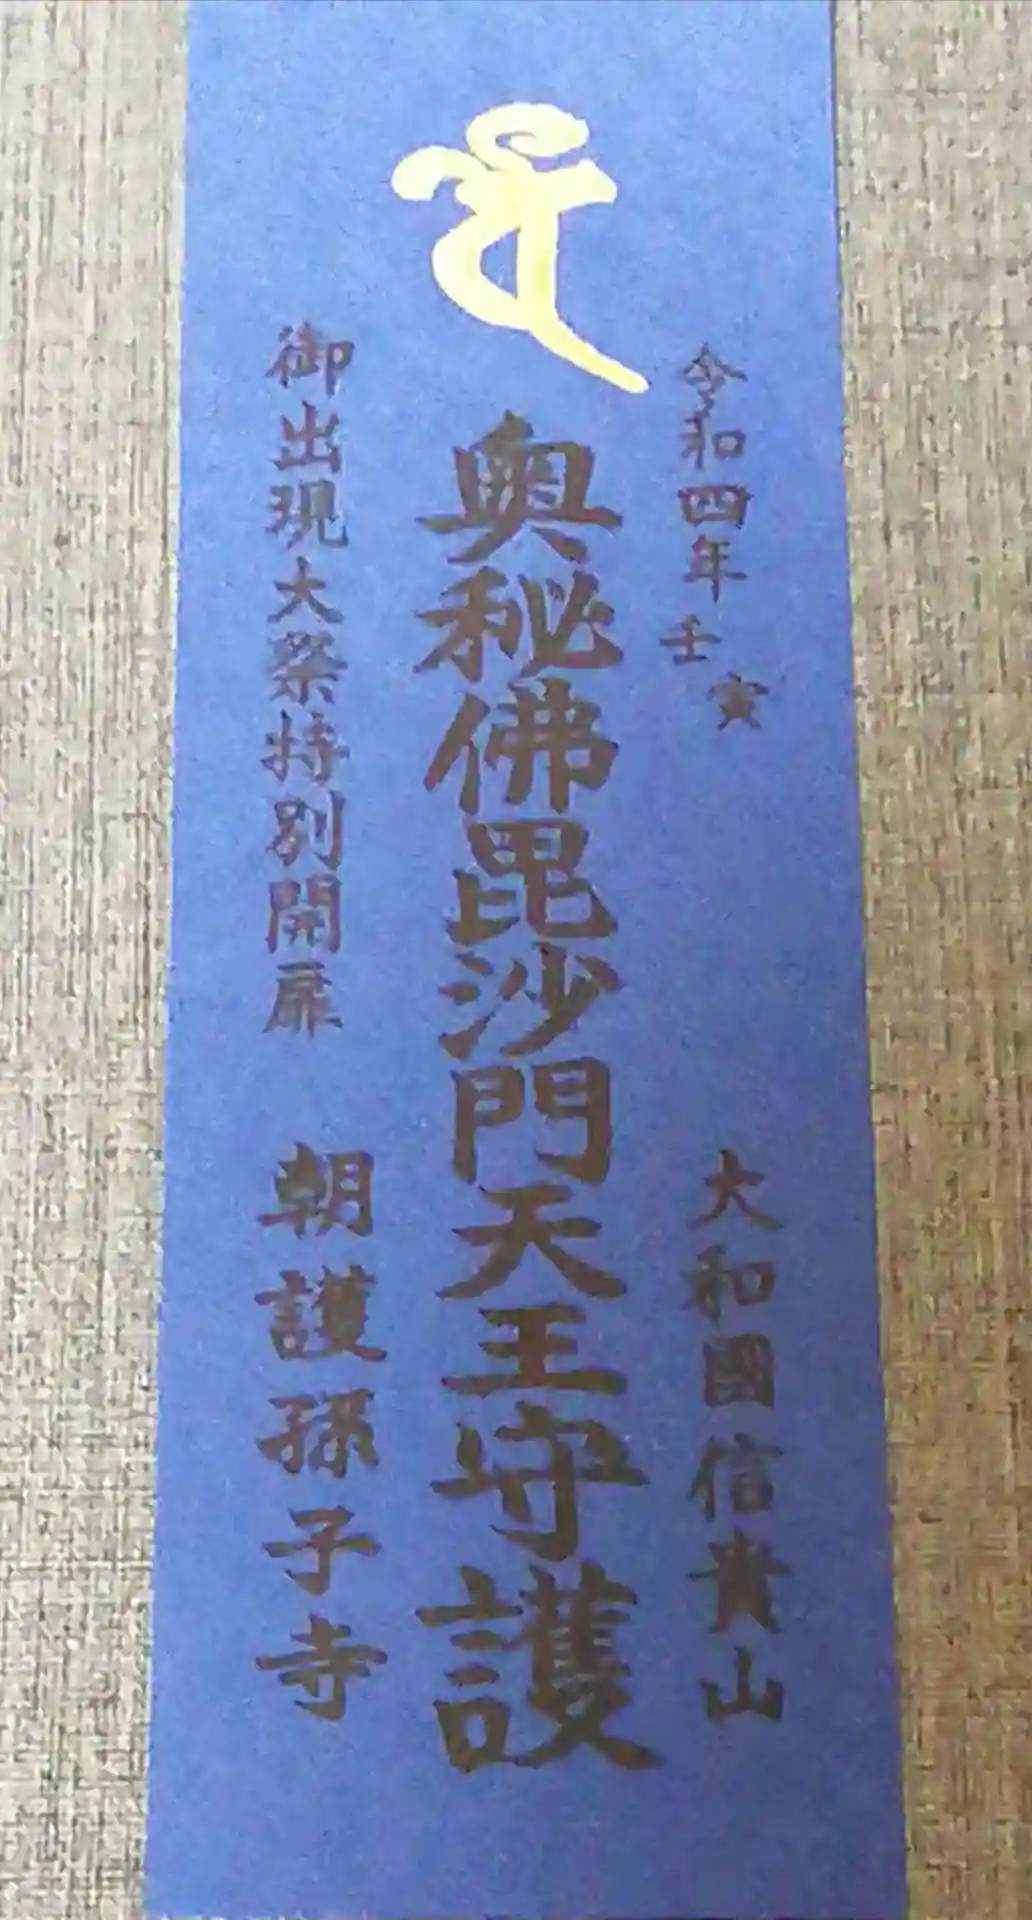 令和四年 壬寅 大和國信貴山
奥秘佛毘沙門天王守護
御出現大祭特別開扉 朝護孫子寺